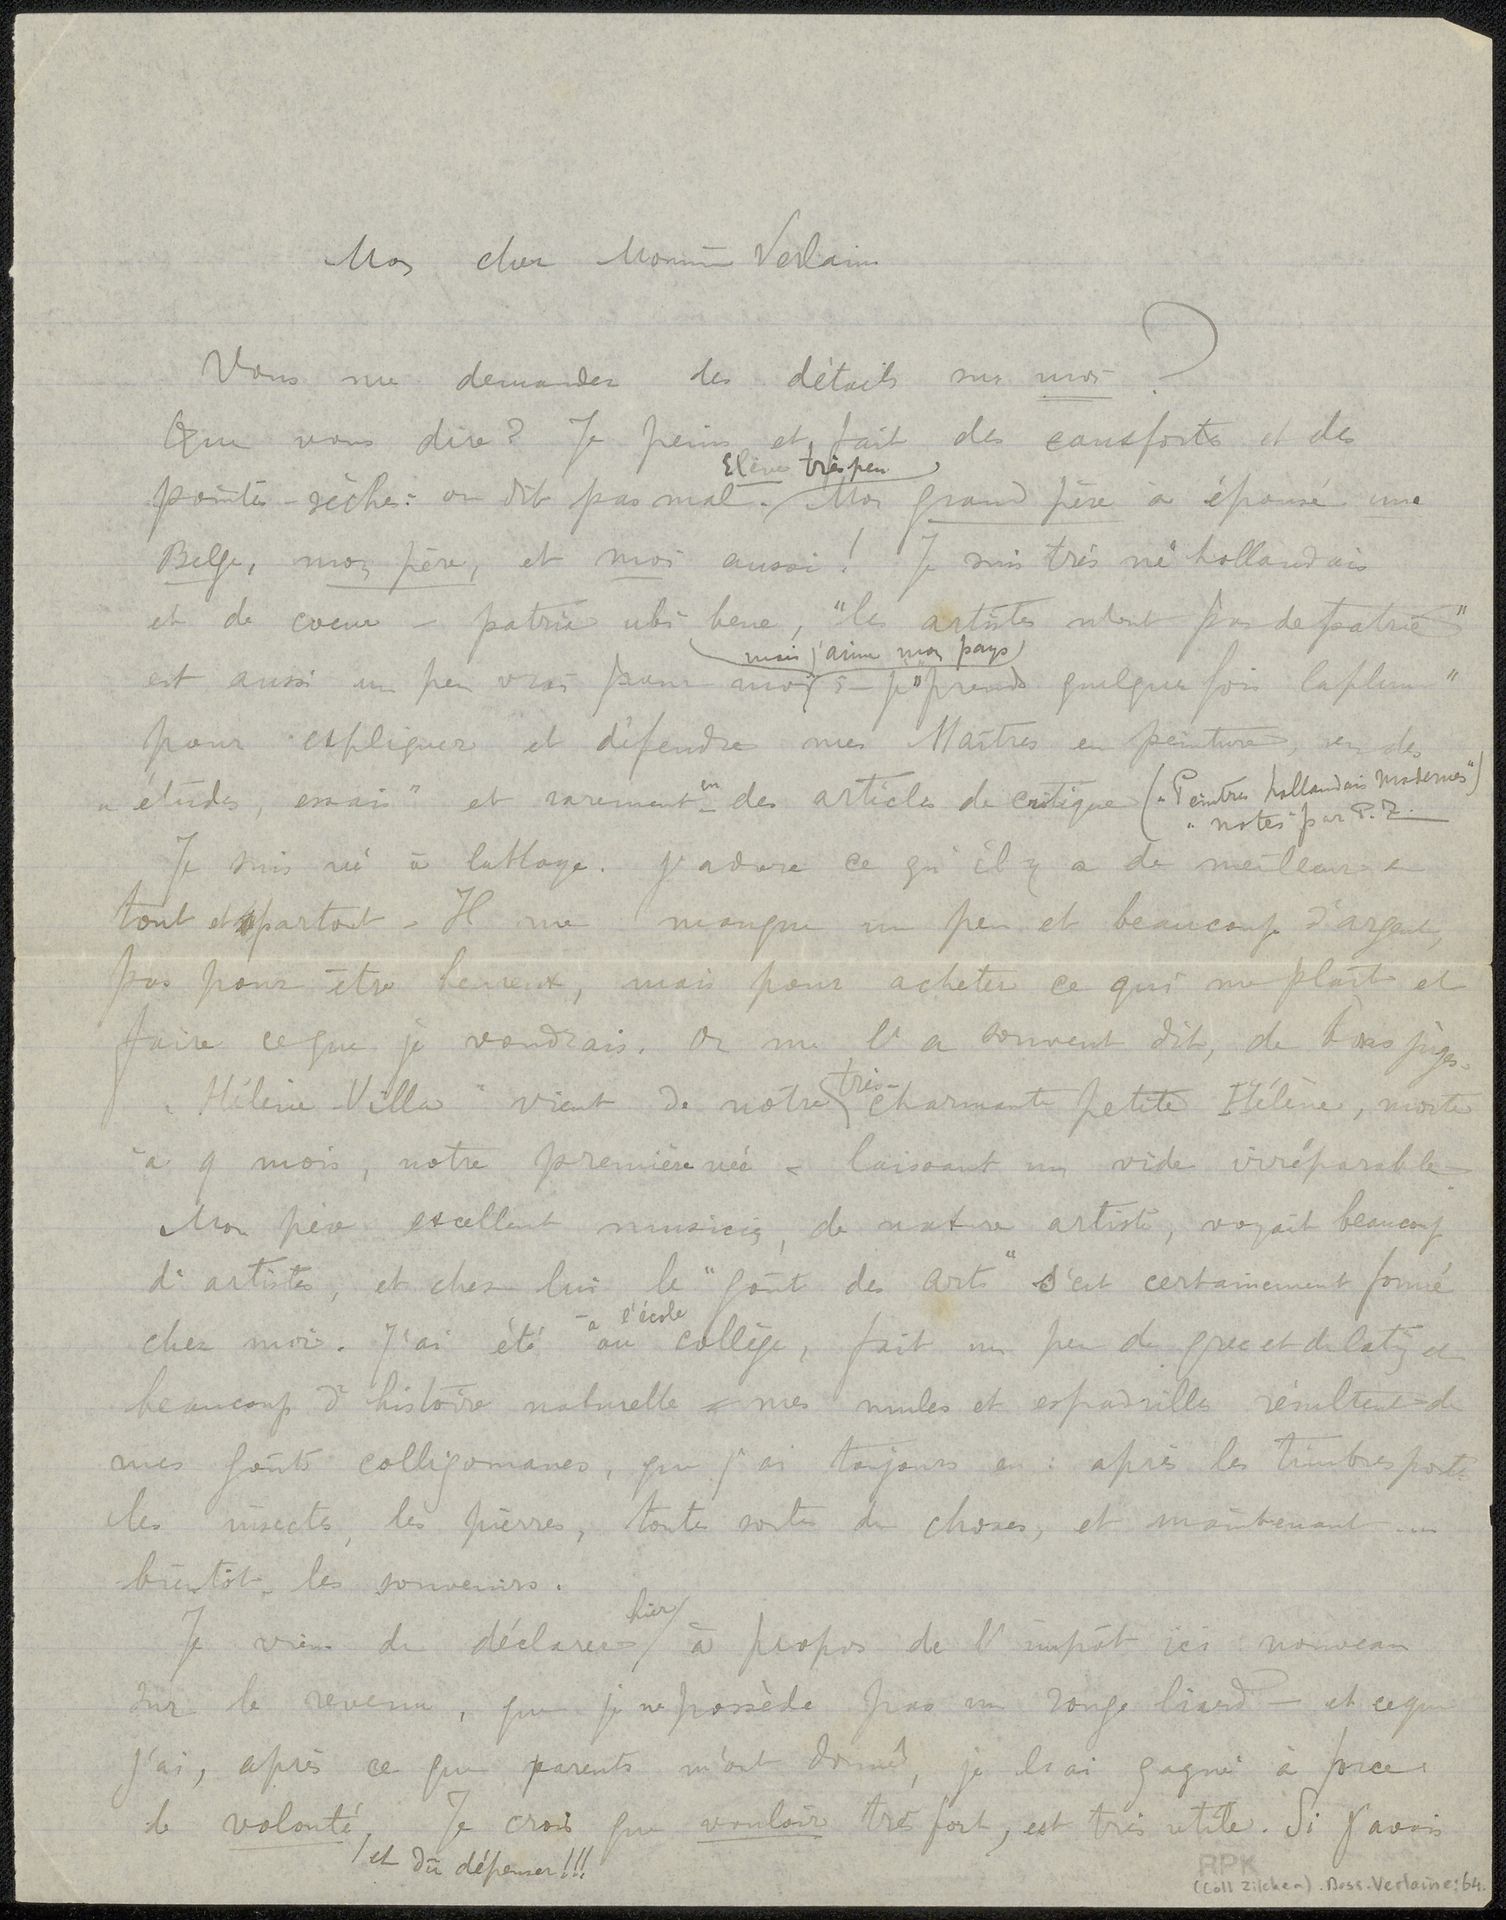 Mon cher Monsieur Verlaine
Vous me demandez des détails sur moi ?
Que vous dire? Je peins et fait des eauxfortes et des
Elève très peu
pointes-sèches: on dit pas mal. Mon grand père a épousé une
Belge, mon père, et moi aussi! Je suis très né hollandais
et de coeur – patria ubi bene, "les artistes n'ont pas de patrie"
mais j'aime mon pays
est aussi un peu vrai pour moi – je "prends quelques fois la plume"
pour expliquer et défendre mes Maîtres en peinture, en des
"études, essais" et rarement en des articles de critique ("Peintres hollandais modernes")
"notes" par P.Z.
Je suis né à la Haye. J'adore ce qu'il y a de meilleur en
tout et partout – Il me manque un peu et beaucoup d'argent,
pas pour être heureux, mais pour acheter ce qui me plaît et
faire ce que je voudrais. On me l'a souvent dit, de bons juges.
"Hélène-Villa" vient de notre très-charmante petite Hélène, morte
à 9 mois, notre première née – laissant un vide irréparable.
Mon père excellent musicien, de nature artiste, voyait beaucoup
d'artistes, et chez lui le "goût des arts" s'est certainement formé
à l'école
chez moi. J'ai été au collège, fait un peu de grec et de latin et
beaucoup d'histoire naturelle – mes mules et espadrilles résultent de
mes goûts colligomanes, que j'ai toujours eu: après les timbresposte
les insectes, les pierres, toutes sortes de choses, et maintenant ...
bientôt – les souvenirs.
Je viens de déclarer hier à propos de l'impôt ici nouveau
sur le revenu, que je ne possède pas un rouge liard – et ce que
j'ai, après ce que parents m'ont donné, je l'ai gagné à force
de volonté. Je crois que vouloir très fort, est très utile. Si j'avais
et dû dépenser!!!
RPK
(Coll Zilcken). Doss. Verlaine: 64.